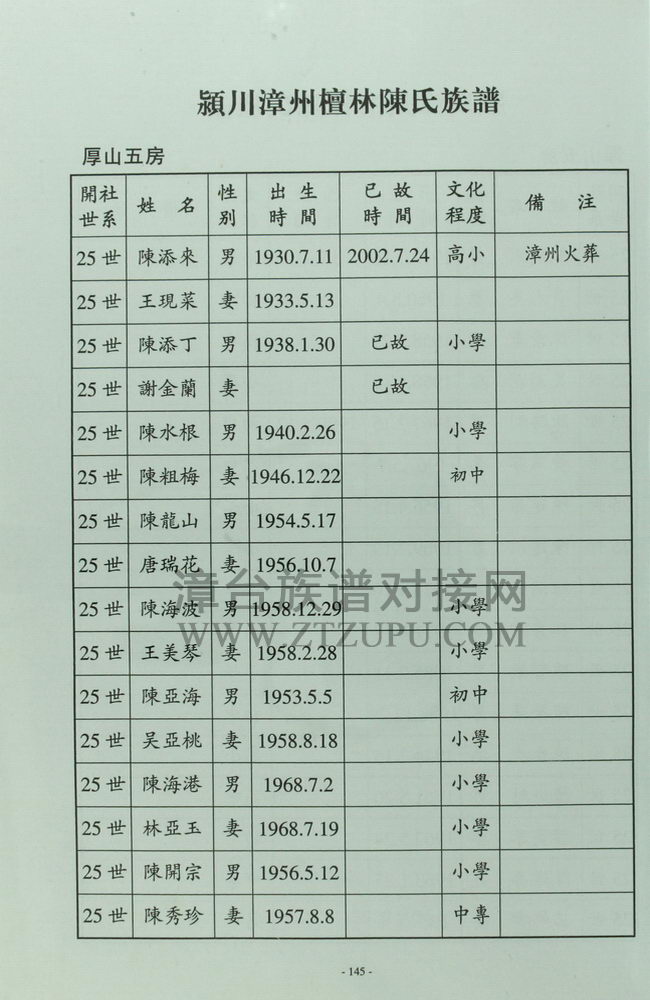 潁川漳州檀林陳氏族譜
厚山五房
開社世系 姓 名 性別 出生時間 已故時間 文化程度 備 注
25世 陳添來 男 1930.7.11 2002.7.24 高小 漳州火葬
25世 王現菜 妻 1933.5.13
25世 陳添丁 男 1938.1.30 已故 小學
25世 謝金蘭 妻 已故
25世 陳水根 男 1940.2.26 小學
25世 陳粗梅 妻 1946.12.22 初中
25世 陳龍山 男 1954.5.17
25世 唐瑞花 妻 1956.10.7
漳台族谱对接网
25世 陳海波 男 1958.12.29 小學
WWW.ZTZUPU.COM
25世 王美琴 妻 1958.2.28 小學
25世 陳亞海 男 1953.5.5 初中
25世 吴亞桃 妻 1958.8.18 小學
25世 陳海港 男 1968.7.2 小學
25世 林亞玉 妻 1968.7.19 小學
25世 陳開宗 男 1956.5.12 小學
25世 陳秀珍 妻 1957.8.8 中專
- 145 -